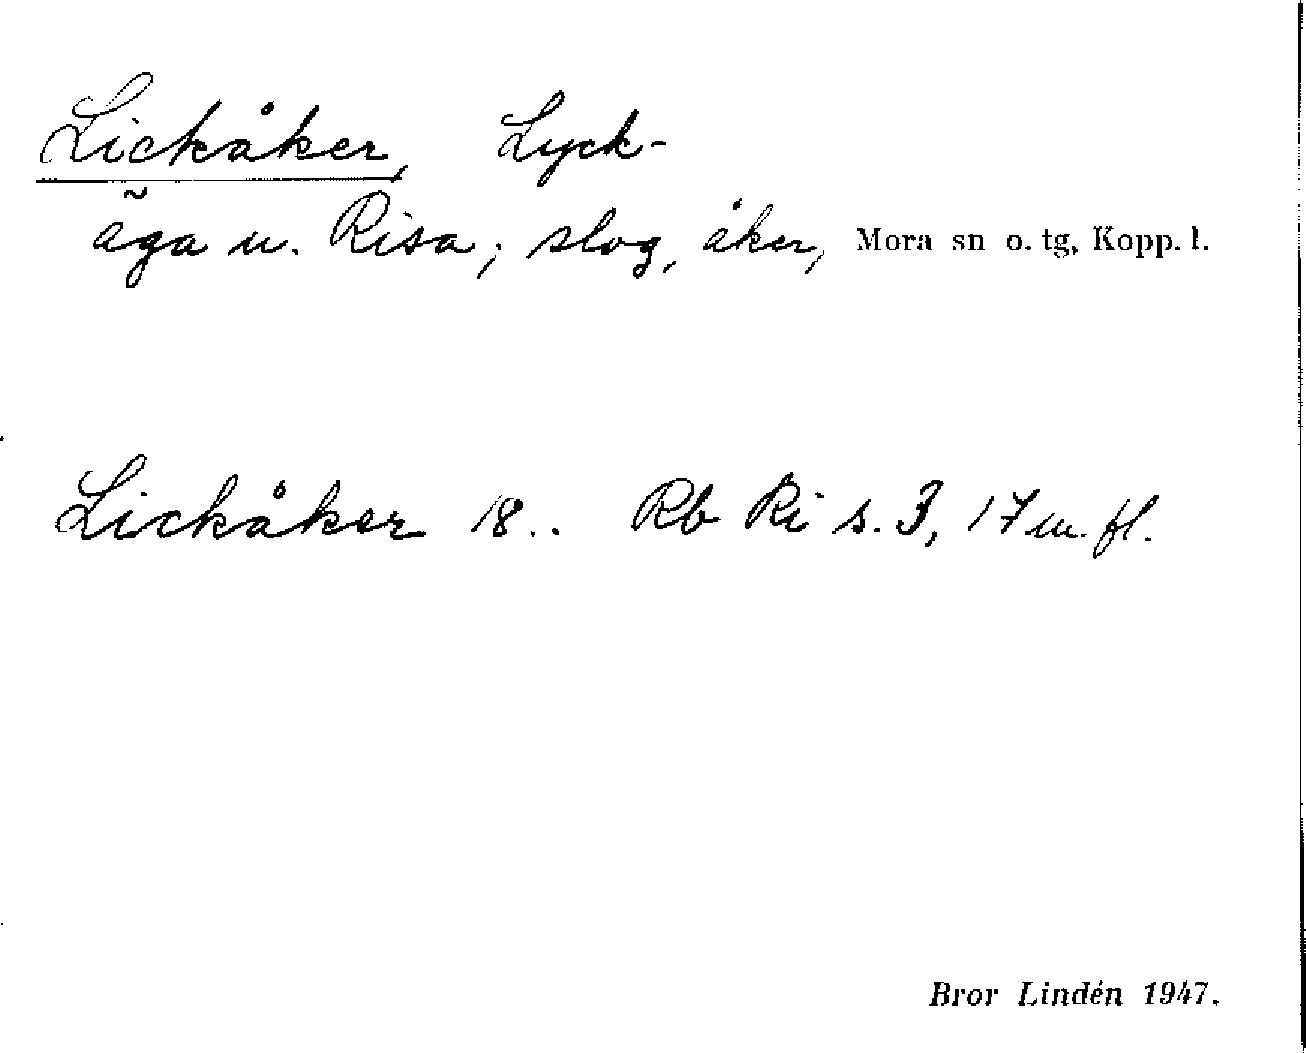 Lickåker, Lyck-
äga u. Risa; slog, åker, Mora sn o. tg, Kopp. l.
Lickåker 18.. Rb Ri s. 3, 17 m. fl.
Bror Lindén 1947.